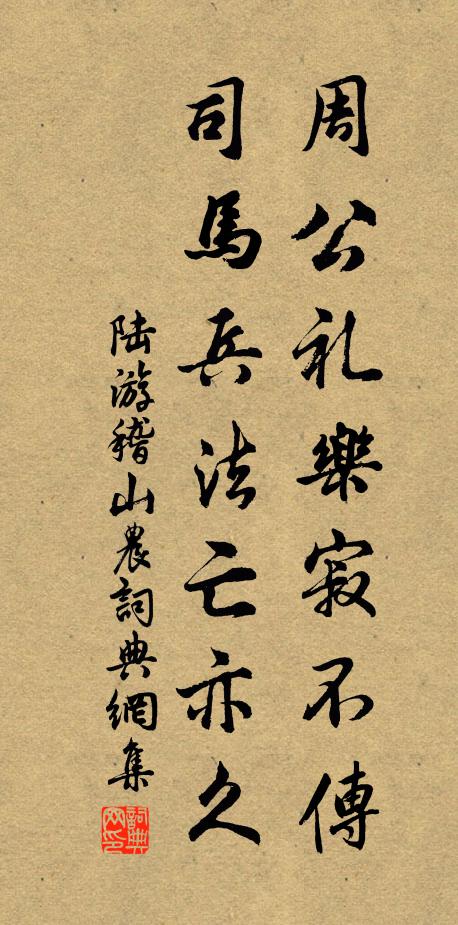 周公礼樂寂不傳
司馬兵法亡亦久
陆游稽山農詞典網集
詞典网印